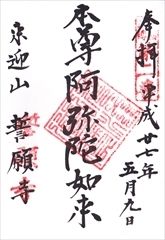 奉拝 平成廿七年
五月九日
本尊阿弥陀如来
来迎山 誓願寺